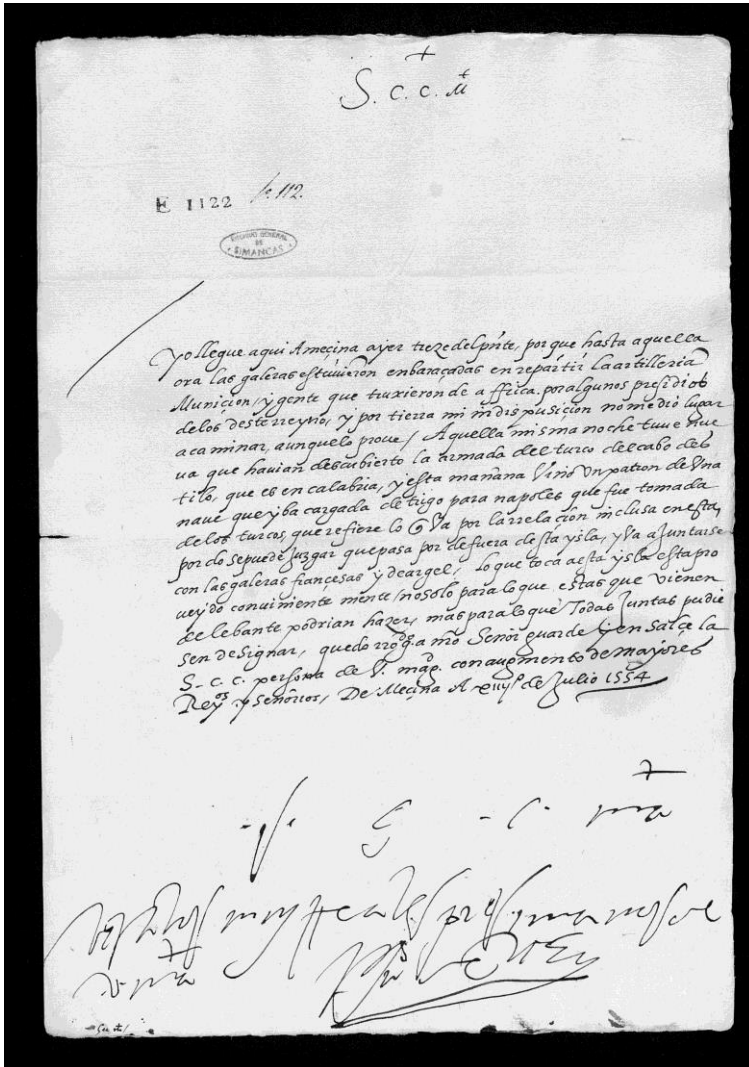 +
S. c. c. M^t
E 1122 fo. 112.
ARCHIVO GENERAL
DE
SIMANCAS
yo llegue aqui A meçina ayer treze del pnte, por que hasta aquella
ora las galeras estuvieron enbaraçadas en repartir la artilleria
Municion, y gente que truxieron de affrica por algunos presidios
de los deste reyno, y por tierra mi indispusicion no me dio lugar
a caminar, aunque lo prove / Aquella misma noche tuve nue
va que havian descubierto la armada del turco del cabo de es
tilo, que es en calabria, y esta mañana Vino Un patron de Una
nave que yba cargada de trigo para napoles que fue tomada
de los turcos, que refiere lo q Va por la relacion inclusa en esta,
por do se puede Juzgar que pasa por de fuera desta ysla, y Va a Juntarse
con las galeras françesas y de argel, lo que toca a esta ysla esta pro
veydo conviniente mente / no solo para lo que estas que vienen
de lebante podrian hazer, mas para lo que Todas Juntas pudie
sen designar, quedo rogdo a nro Señor guarde y ensalçe la
S. c. c. persona de V. mag. con augmento de mayores
Reyos y señorios, De Meçina A xiiij° de Julio 1554
.s. c. c. m^t
muy reales manos de
v. m^t Ju de Vega